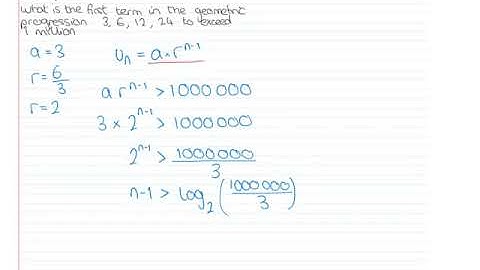 what is the first term in the geometric
progression 3, 6, 12, 24 to exceed
1 million
a = 3
Un = a × r^n-1
r = 6/3
a r^n-1 > 1000 000
r = 2
3 × 2^n-1 > 1000000
2^n-1 > 1000000/3
n-1 > log₂(1000000/3)